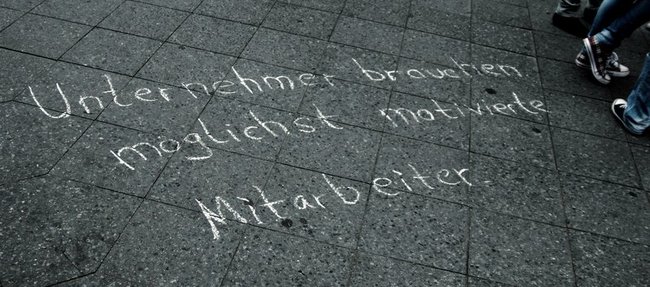 Unternehmer brauchen
möglichst motivierte
Mitarbeiter.